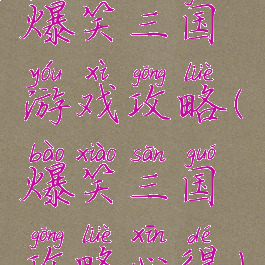 爆笑三国
yóu xì gōng lüè
游戏攻略(
bào xiào sān guó
爆笑三国
gōng lüè xīn dé
攻略心得)